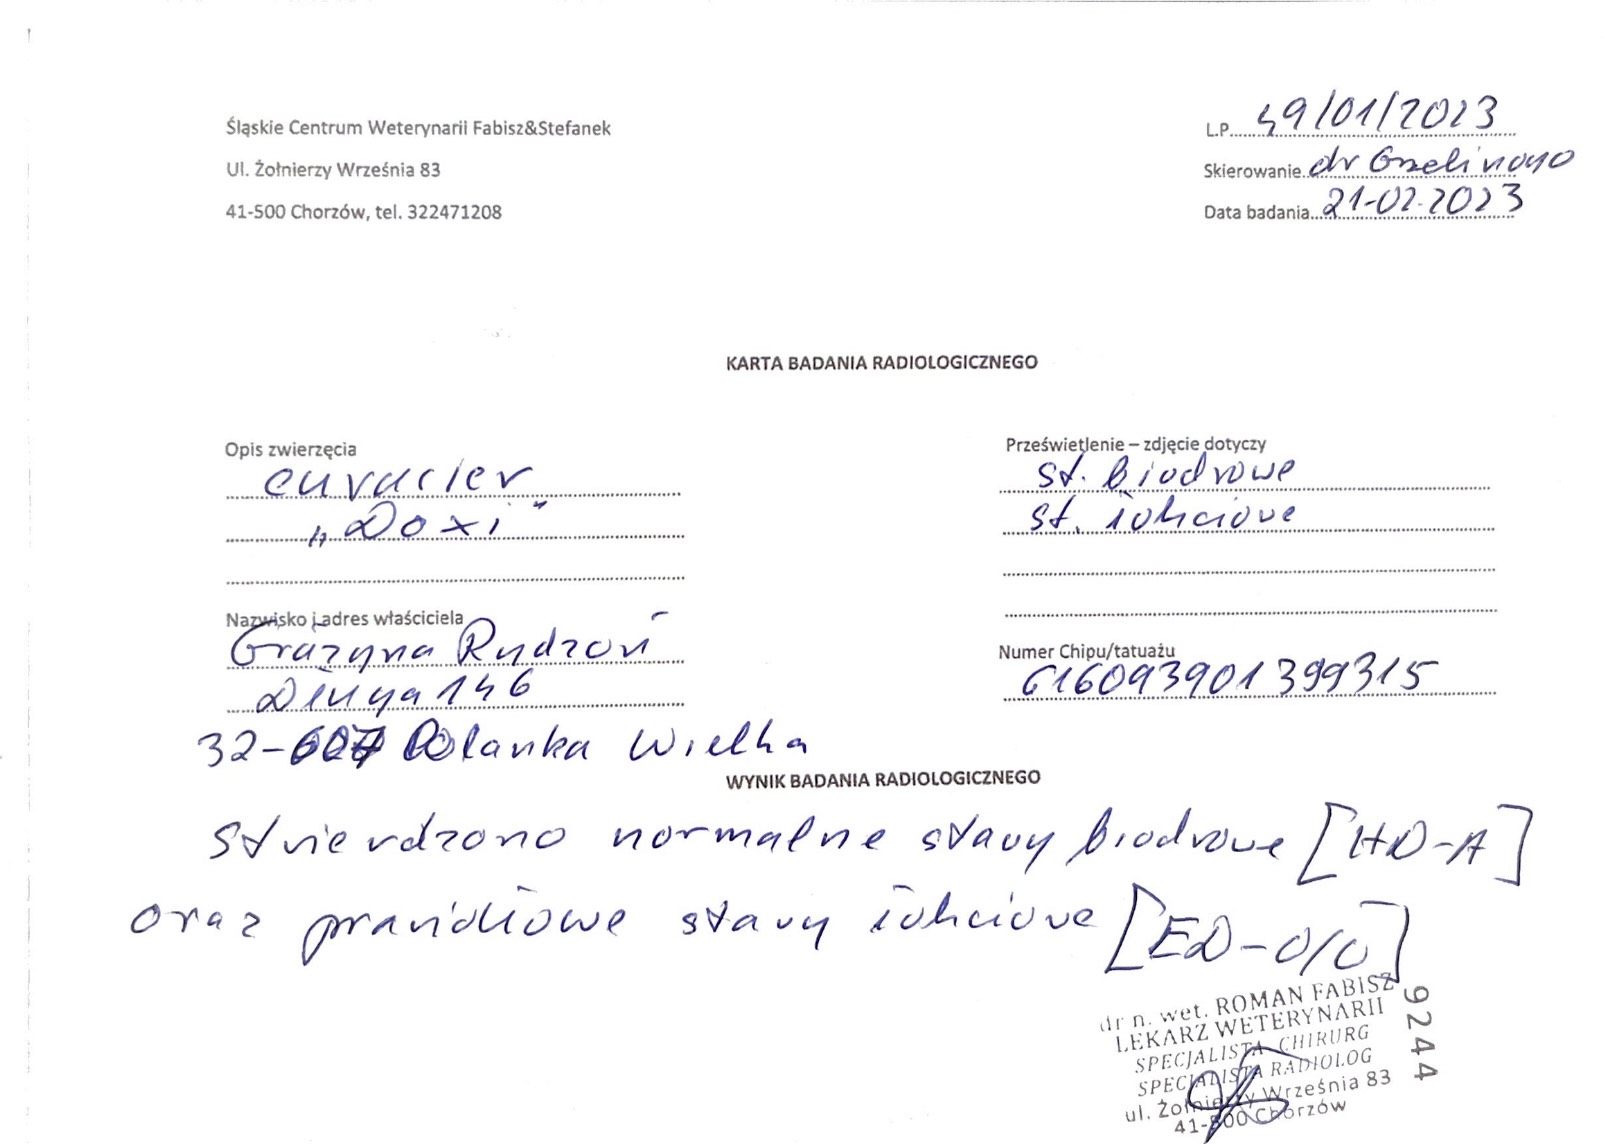 Śląskie Centrum Weterynarii Fabisz&Stefanek
Ul. Żołnierzy Września 83
41-500 Chorzów, tel. 322471208
L.P. 49/01/2023
Skierowanie dr
Data badania 21-02-2023
KARTA BADANIA RADIOLOGICZNEGO
Opis zwierzęcia
"Doxi"
Prześwietlenie – zdjęcie dotyczy
st. biodrowe
st. łokciowe
Nazwisko i adres właściciela
Grażyna Rydzoń
Długa 146
32-607 Polanka Wielka
Numer Chipu/tatuażu
616093901399315
WYNIK BADANIA RADIOLOGICZNEGO
Stwierdzono normalne stawy biodrowe [HD-A]
oraz prawidłowe stawy łokciowe [ED-0/0]
dr n. wet. ROMAN FABISZ
LEKARZ WETERYNARII
SPECJALISTA CHIRURG
SPECJALISTA RADIOLOG
ul. Żołnierzy Września 83
41-500 Chorzów
9244